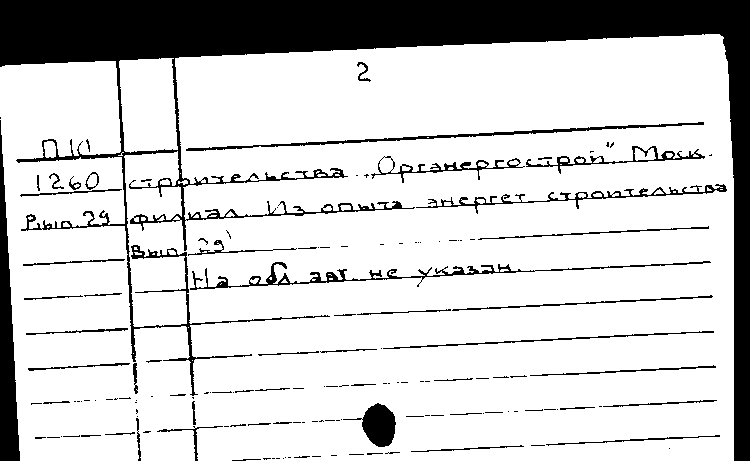 2
П10
1260 строительства „Органергострой". Моск.
Вып. 29 филиал. Из опыта энергет строительства
Вып. 29
На обл. авт. не указан.